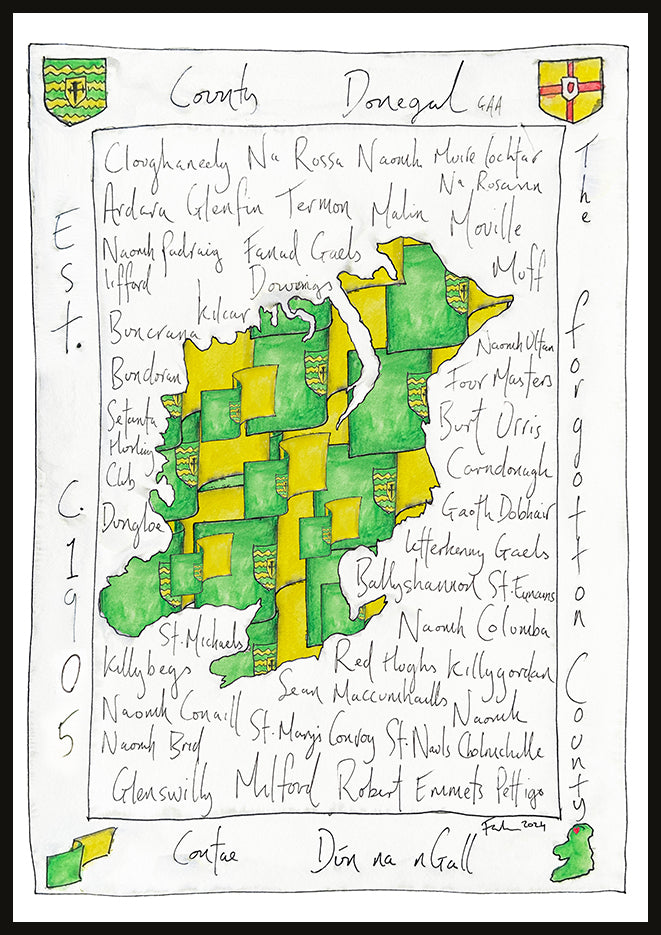 County Donegal GAA
Est. C. 1905
The forgotton County
Cloughaneely Na Rossa Naomh Muire Íochtar
Na Rosann
Ardara Glenfin Termon Malin Moville
Naomh Padraig Fanad Gaels Muff
Lifford Downings
Buncrana Kilcar
Naomh Ultan
Bundoran Four Masters
Setanta Burt Urris
Hurling
Club Carndonagh
Dungloe Gaoth Dobhair
Letterkenny Gaels
Ballyshannon St. Eunans
St. Michaels Naomh Columba
Killybegs Red Hughs Killygordan
Sean Maccumhaills
Naomh Conaill St. Marys Convoy St. Nauls Naomh
Naomh Brid Cholmchille
Glenswilly Milford Robert Emmets Pettigo
2024
Contae Dún na nGall